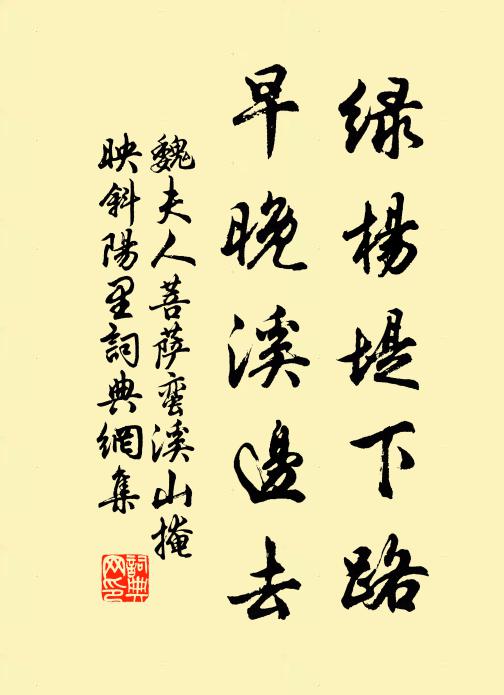 绿楊堤下路
早晚溪邊去
魏夫人菩萨蛮溪山掩
映斜陽里詞典網集
詞典网印